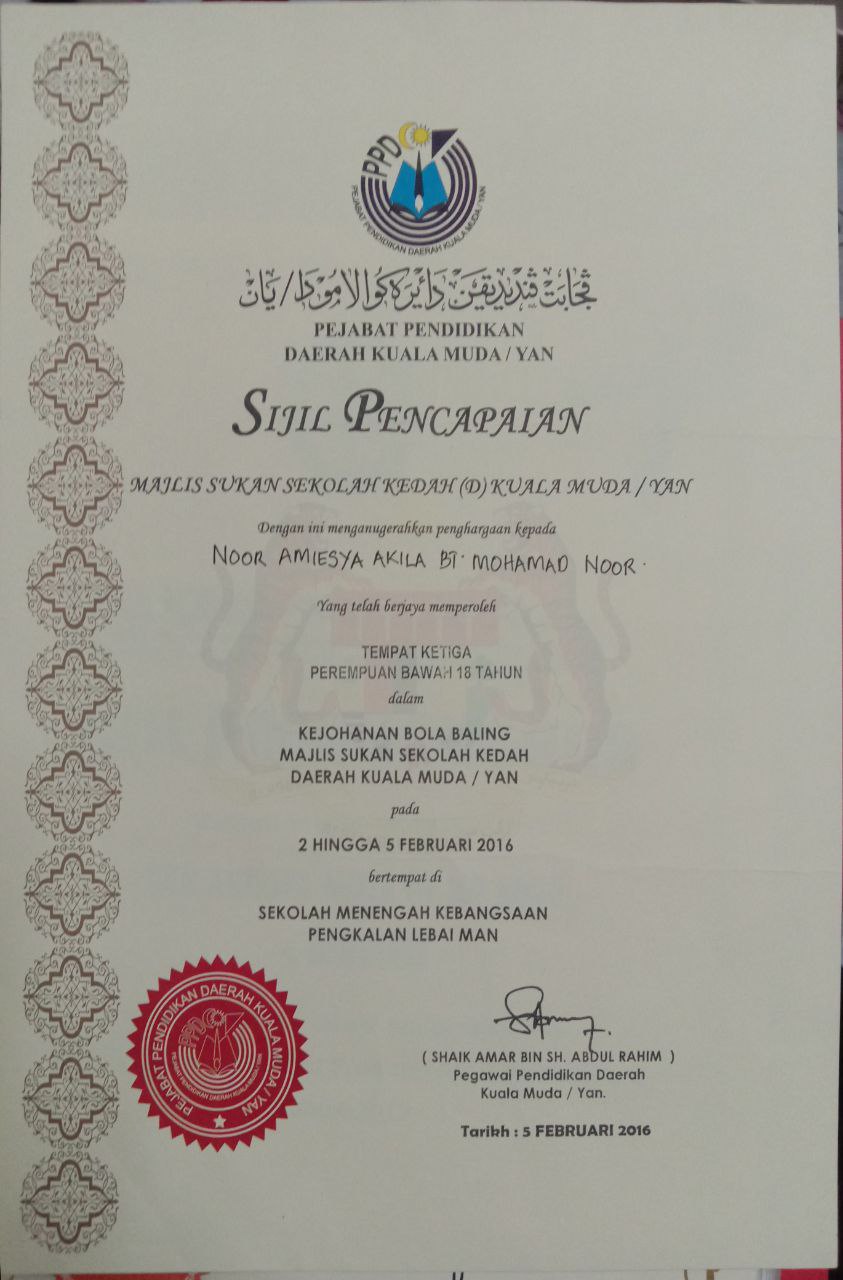 PPD
PEJABAT PENDIDIKAN DAERAH KUALA MUDA/YAN
ڤجابت ڤنديديقن دائيره كوالا مودا/يان
PEJABAT PENDIDIKAN
DAERAH KUALA MUDA / YAN
SIJIL PENCAPAIAN
MAJLIS SUKAN SEKOLAH KEDAH (D) KUALA MUDA / YAN
Dengan ini menganugerahkan penghargaan kepada
NOOR AMIESYA AKILA BT. MOHAMAD NOOR.
Yang telah berjaya memperoleh
TEMPAT KETIGA
PEREMPUAN BAWAH 18 TAHUN
dalam
KEJOHANAN BOLA BALING
MAJLIS SUKAN SEKOLAH KEDAH
DAERAH KUALA MUDA / YAN
pada
2 HINGGA 5 FEBRUARI 2016
bertempat di
SEKOLAH MENENGAH KEBANGSAAN
PENGKALAN LEBAI MAN
PEJABAT PENDIDIKAN DAERAH KUALA MUDA / YAN
PPD
PEJABAT PENDIDIKAN DAERAH KUALA MUDA/YAN
( SHAIK AMAR BIN SH. ABDUL RAHIM )
Pegawai Pendidikan Daerah
Kuala Muda / Yan.
Tarikh : 5 FEBRUARI 2016